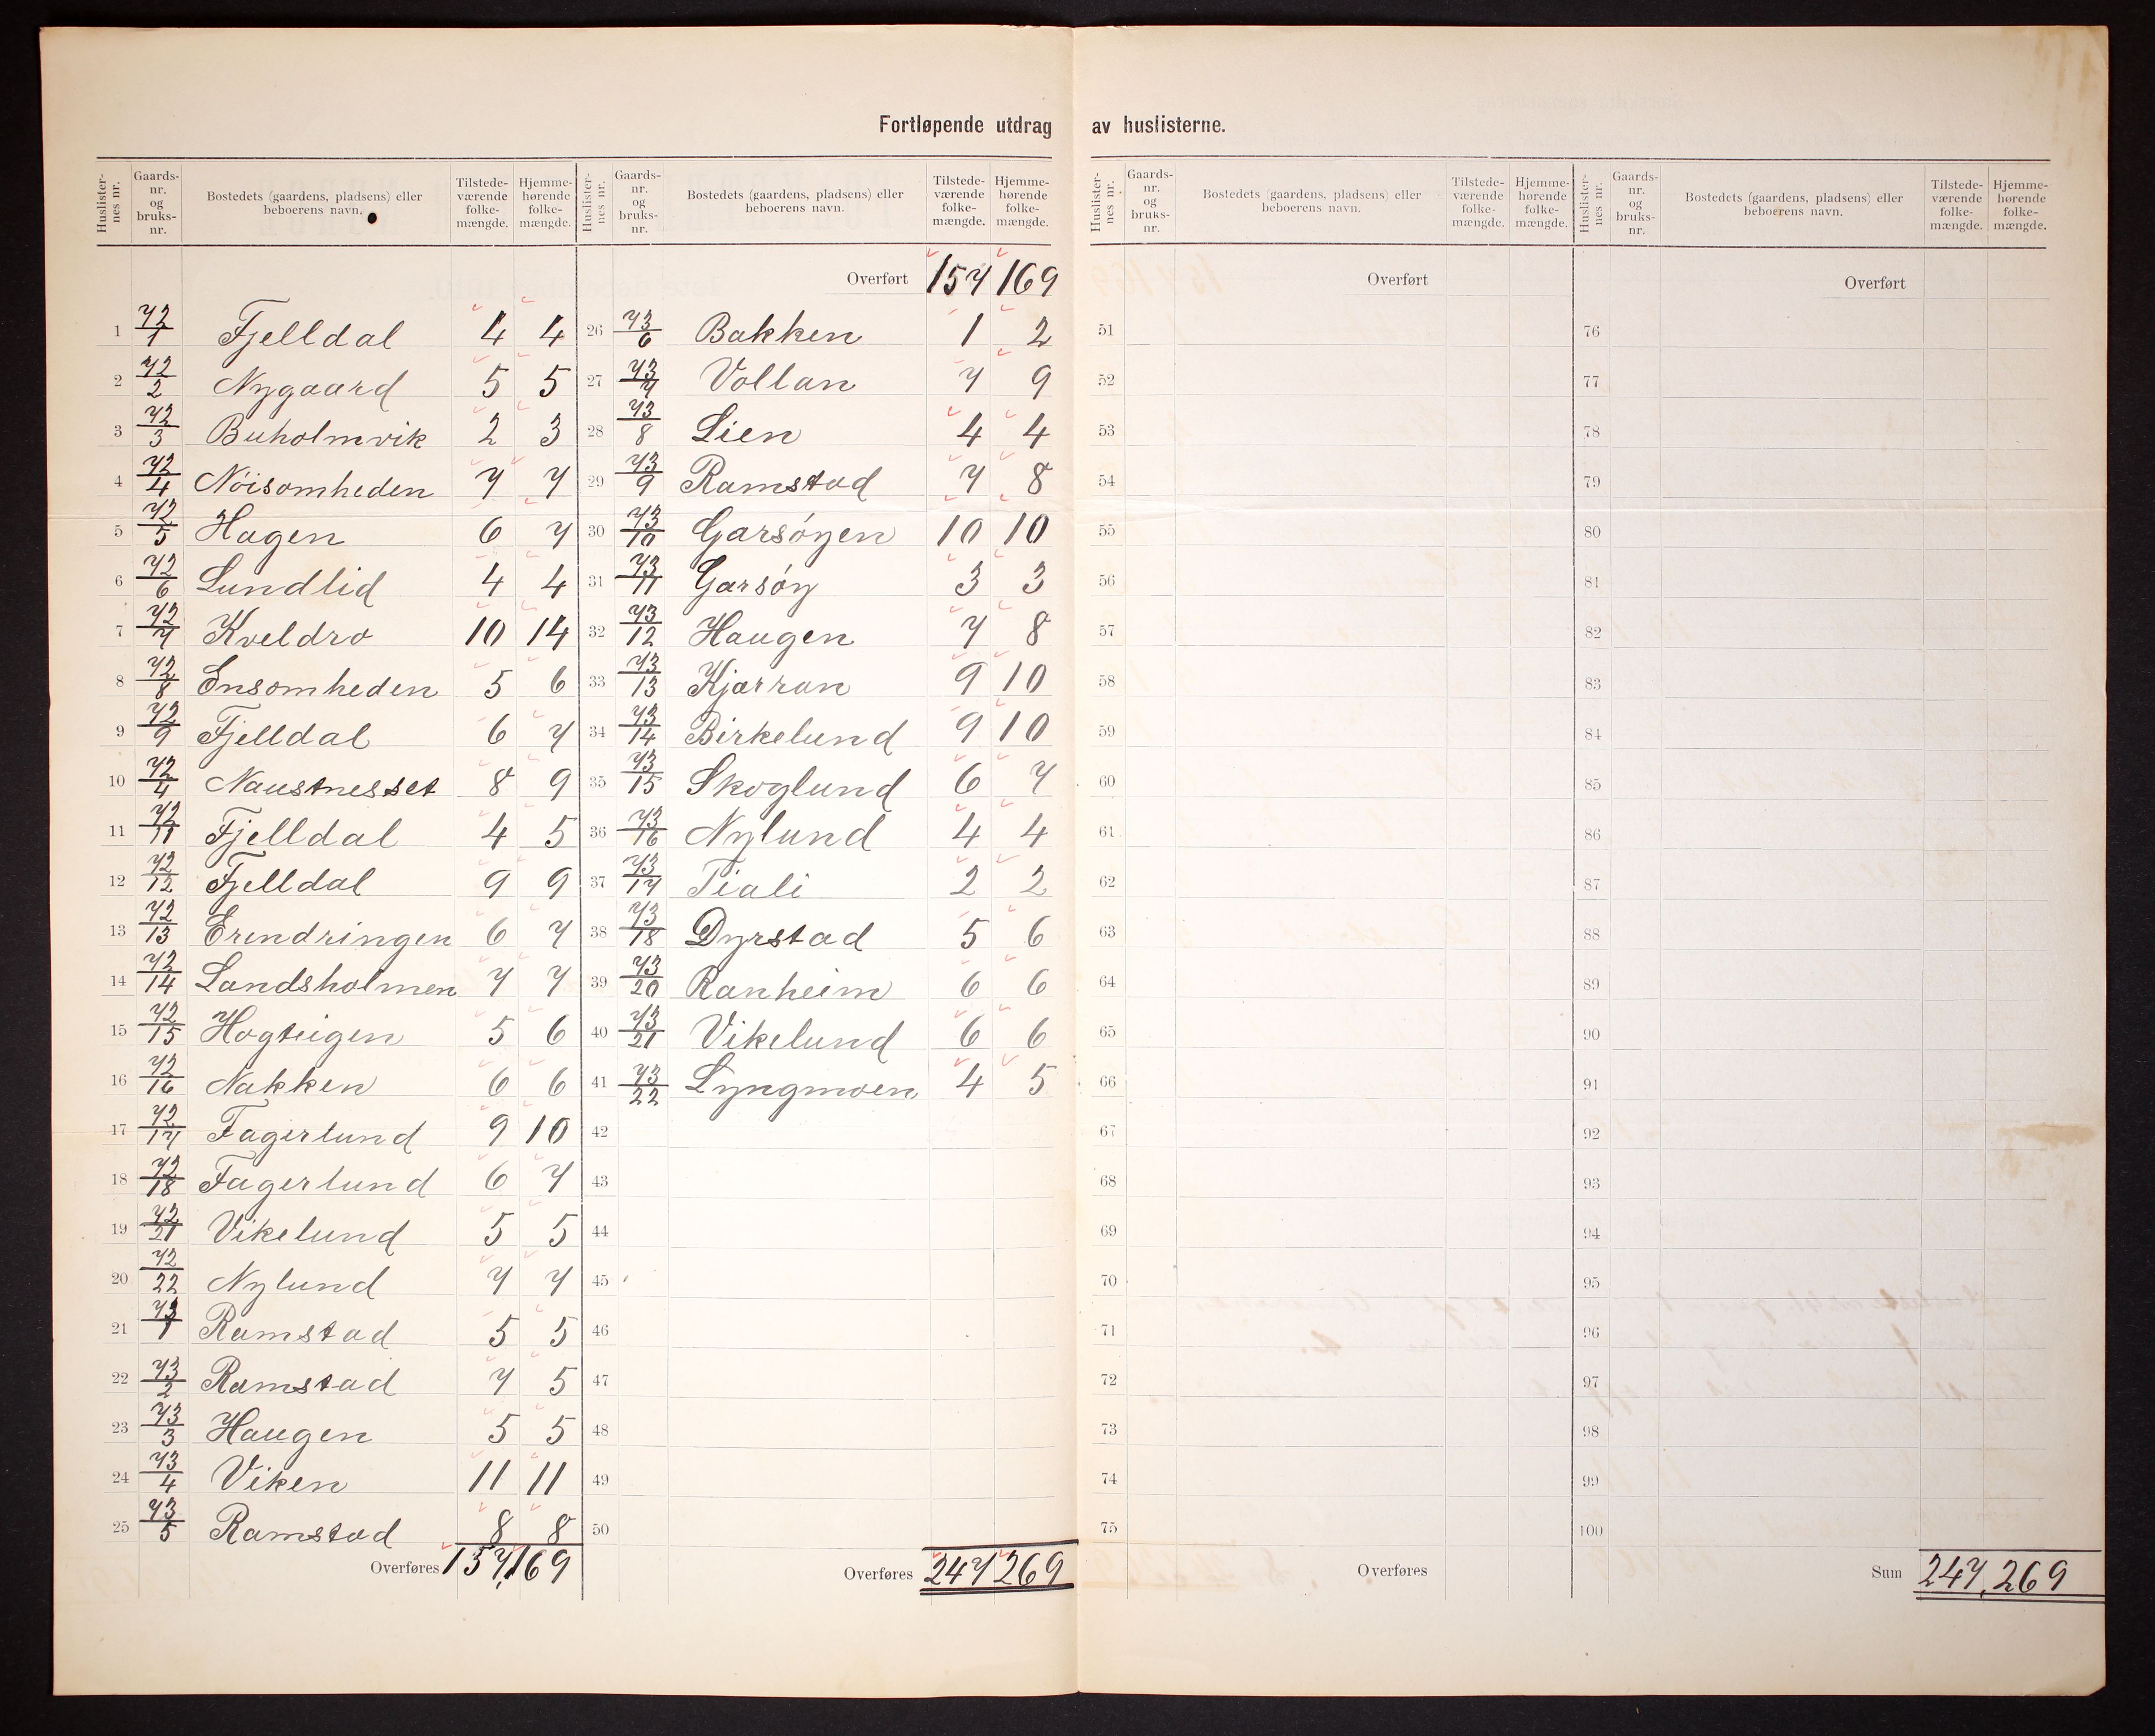 Fortløpende utdrag av huslisterne.
Huslisternes nr. Gaards-nr. og bruks-nr. Bostedets (gaardens, pladsens) eller beboerens navn. Tilstedeværende folkemængde. Hjemmehørende folkemængde.
Huslisternes nr. Gaards-nr. og bruks-nr. Bostedets (gaardens, pladsens) eller beboerens navn. Tilstedeværende folkemængde. Hjemmehørende folkemængde.
1 72/1 Fjelldal 4 4
2 72/2 Nygaard 5 5
3 72/3 Buholmvik 2 3
4 72/4 Nöisomheden 7 7
5 72/5 Hagen 6 7
6 72/6 Lundlid 4 4
7 72/7 Kveldro 10 14
8 72/8 Ensomheden 5 6
9 72/9 Fjelldal 6 7
10 72/4 Naustnesset 8 9
11 72/11 Fjelldal 4 5
12 72/12 Fjelldal 9 9
13 72/13 Erindringen 6 7
14 72/14 Landsholmen 7 7
15 72/15 Hogteigen 5 6
16 72/16 Nakken 6 6
17 72/17 Fagerlund 9 10
18 72/18 Fagerlund 6 7
19 72/21 Vikelund 5 5
20 72/22 Nylund 7 7
21 73/1 Ramstad 5 5
22 73/2 Ramstad 7 5
23 73/3 Haugen 5 5
24 73/4 Viken 11 11
25 73/5 Ramstad 8 8
Overføres 157, 169
Overført 157 169
26 73/6 Bakken 1 2
27 73/7 Vollan 7 9
28 73/8 Lien 4 4
29 73/9 Ramstad 7 8
30 73/10 Garsöyen 10 10
31 73/11 Garsöy 3 3
32 73/12 Haugen 7 8
33 73/13 Kjarran 9 10
34 73/14 Birkelund 9 10
35 73/15 Skoglund 6 7
36 73/16 Nylund 4 4
37 73/17 Tiali 2 2
38 73/18 Dyrstad 5 6
39 73/20 Ranheim 6 6
40 73/21 Vikelund 6 6
41 73/22 Lyngmoen 4 5
42
43
44
45
46
47
48
49
50
Overføres 247 269
Huslisternes nr. Gaards-nr. og bruks-nr. Bostedets (gaardens, pladsens) eller beboerens navn. Tilstedeværende folkemængde. Hjemmehørende folkemængde.
Huslisternes nr. Gaards-nr. og bruks-nr. Bostedets (gaardens, pladsens) eller beboerens navn. Tilstedeværende folkemængde. Hjemmehørende folkemængde.
Overført
51
52
53
54
55
56
57
58
59
60
61
62
63
64
65
66
67
68
69
70
71
72
73
74
75
Overføres
Overført
76
77
78
79
80
81
82
83
84
85
86
87
88
89
90
91
92
93
94
95
96
97
98
99
100
Sum 247, 269